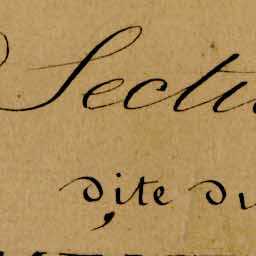 Secti
dite du